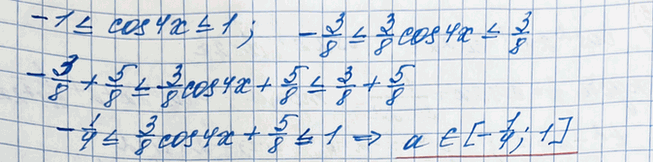 -1 ≤ cos4x ≤ 1; -3/8 ≤ 3/8 cos4x ≤ 3/8
-3/8 + 5/8 ≤ 3/8 cos4x + 5/8 ≤ 3/8 + 5/8
-1/4 ≤ 3/8 cos4x + 5/8 ≤ 1 ⇒ a ∈ [-1/4; 1]